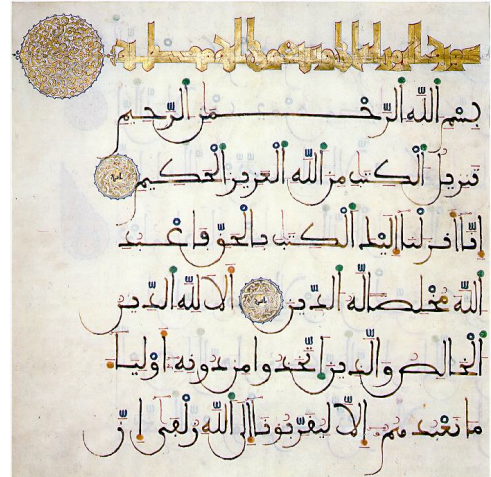 سورة
بِسْمِ اللَّهِ الرَّحْمَنِ الرَّحِيمِ
تَنزِيلُ الْكِتَبِ مِنَ اللَّهِ الْعَزِيزِ الْحَكِيمِ
إِنَّا أَنزَلْنَا إِلَيْكَ الْكِتَبَ بِالْحَقِّ فَاعْبُدِ
اللَّهَ مُخْلِصًا لَّهُ الدِّينَ أَلَا لِلَّهِ الدِّينُ
الْخَالِصُ وَالَّذِينَ اتَّخَذُوا مِن دُونِهِ أَوْلِيَاءَ
مَا نَعْبُدُهُمْ إِلَّا لِيُقَرِّبُونَا إِلَى اللَّهِ زُلْفَى إِنَّ